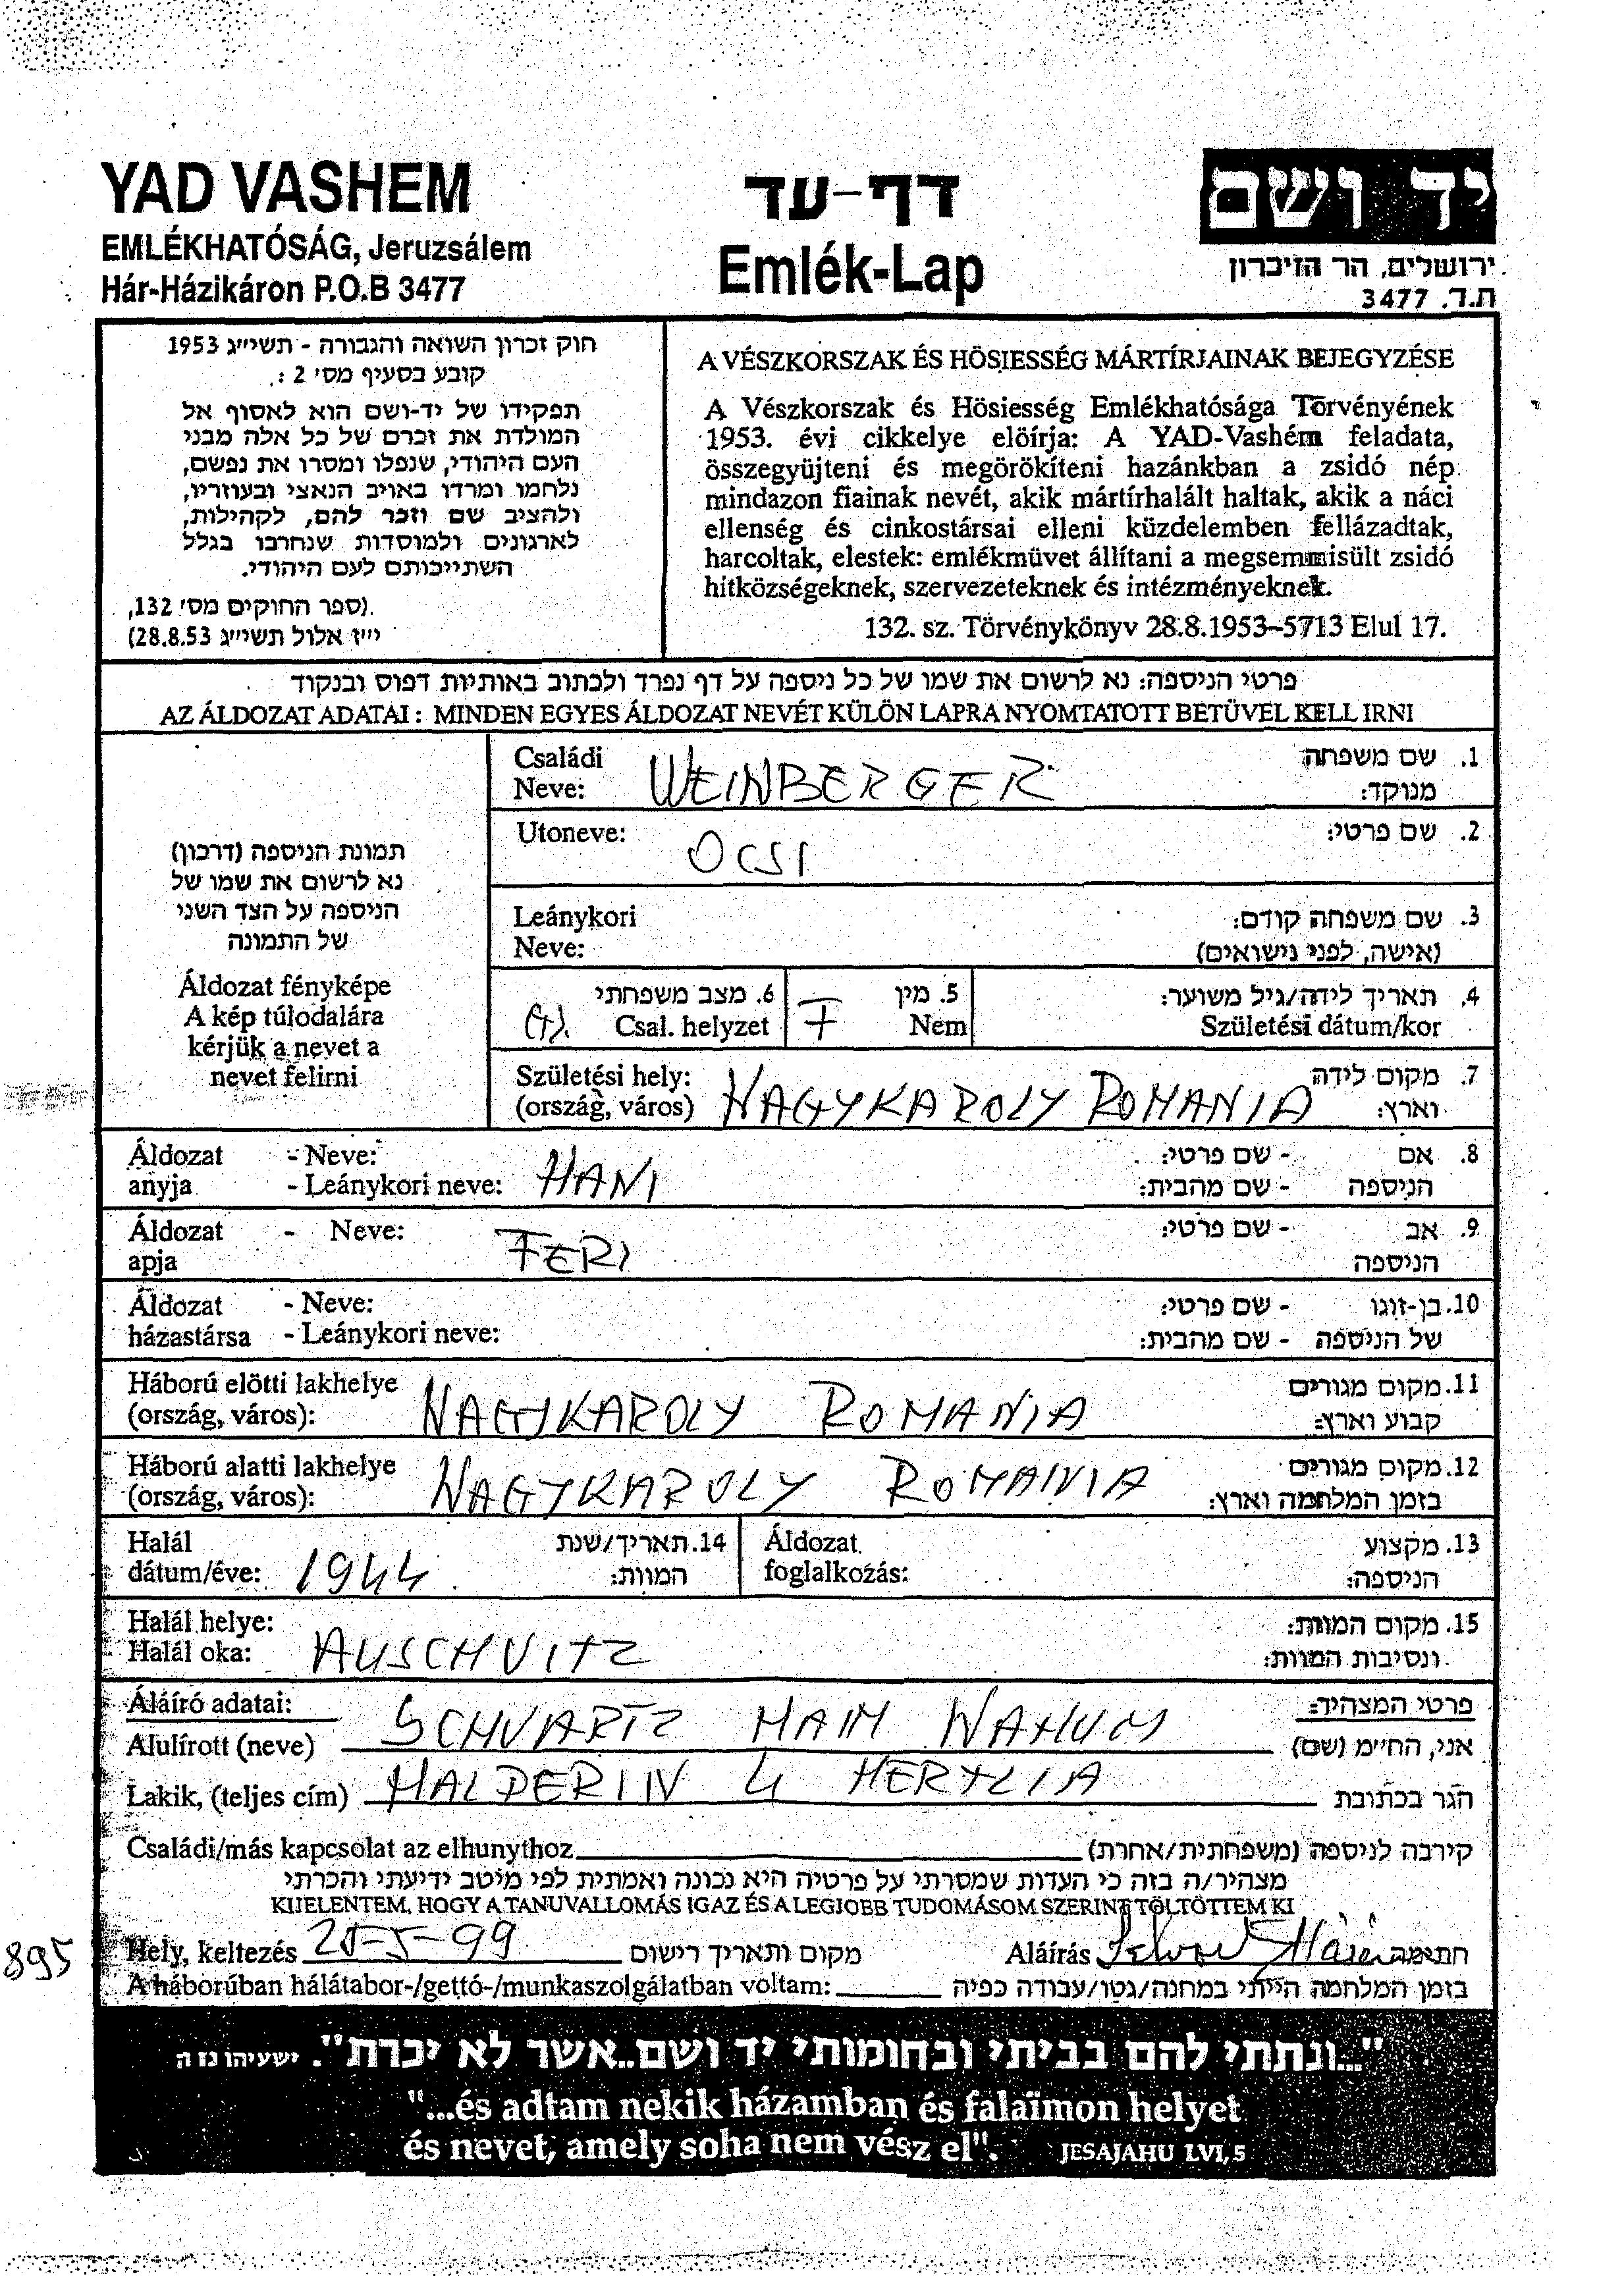 YAD VASHEM
EMLÉKHATÓSÁG, Jeruzsálem
Hár-Házikáron P.O.B 3477
דף-עד
Emlék-Lap
יד ושם
ירושלים, הר הזיכרון
ת.ד. 3477
חוק זכרון השואה והגבורה - תשי״ג 1953
קובע בסעיף מס׳ 2 :
תפקידו של יד-ושם הוא לאסוף אל
המולדת את זכרם של כל אלה מבני
העם היהודי, שנפלו ומסרו את נפשם,
נלחמו ומרדו באויב הנאצי ובעוזריו,
ולהציב שם וזכר להם, לקהילות,
לארגונים ולמוסדות שנחרבו בגלל
השתייכותם לעם היהודי.
(ספר החוקים מס׳ 132,
י״ז אלול תשי״ג 28.8.53)
A VÉSZKORSZAK ÉS HÖSIESSÉG MÁRTÍRJAINAK BEJEGYZÉSE
A Vészkorszak és Hösiesség Emlékhatósága Törvényének
1953. évi cikkelye elöírja: A YAD-Vashém feladata,
összegyüjteni és megörökíteni hazánkban a zsidó nép
mindazon fiainak nevét, akik mártírhalált haltak, akik a náci
ellenség és cinkostársai elleni küzdelemben fellázadtak,
harcoltak, elestek: emlékmüvet állítani a megsemmisült zsidó
hitközségeknek, szervezeteknek és intézményeknek.
132. sz. Törvénykönyv 28.8.1953-5713 Elul 17.
פרטי הניספה: נא לרשום את שמו של כל ניספה על דף נפרד ולכתוב באותיות דפוס ובנקוד
AZ ÁLDOZAT ADATAI : MINDEN EGYES ÁLDOZAT NEVÉT KÜLÖN LAPRA NYOMTATOTT BETÜVEL KELL IRNI
תמונת הניספה (דרכון)
נא לרשום את שמו של
הניספה על הצד השני
של התמונה
Áldozat fényképe
A kép túlodalára
kérjük a nevet a
nevet felirni
Családi WEINBERGER 1. שם משפחה
Neve: מנוקד:
Utoneve: OCSI 2. שם פרטי:
Leánykori 3. שם משפחה קודם:
Neve: (אישה, לפני נישואים)
6. מצב משפחתי 5. מין 4. תאריך לידה/גיל משוער:
Csal. helyzet Nem Születési dátum/kor
Születési hely: NAGYKAROLY ROMANIA 7. מקום לידה
(ország, város) וארץ:
Áldozat - Neve: HANI - שם פרטי: 8. אם
anyja - Leánykori neve: - שם מהבית: הניספה
Áldozat - Neve: FERI - שם פרטי: 9. אב
apja הניספה
Áldozat - Neve: - שם פרטי: 10. בן-זוגו
házastársa - Leánykori neve: - שם מהבית: של הניספה
Háború elötti lakhelye NAGYKAROLY ROMANIA 11. מקום מגורים
(ország, város): קבוע וארץ:
Háború alatti lakhelye NAGYKAROLY ROMANIA 12. מקום מגורים
(ország, város): בזמן המלחמה וארץ:
Halál 1944 14. תאריך/שנת Áldozat 13. מקצוע
dátum/éve: המוות: foglalkozás: הניספה:
Halál helye: AUSCHVITZ 15. מקום המוות:
Halál oka: ונסיבות המוות:
Aláíró adatai: פרטי המצהיר:
Alulírott (neve) SCHVARTZ HAIM NAHUM אני, החי״מ (שם)
Lakik, (teljes cím) HALPERIN 4 HERTLIA הגר בכתובת
Családi/más kapcsolat az elhunythoz קירבה לניספה (משפחתית/אחרת)
מצהיר/ה בזה כי העדות שמסרתי על פרטיה היא נכונה ואמתית לפי מיטב ידיעתי והכרתי
KIJELENTEM, HOGY A TANUVALLOMÁS IGAZ ÉS A LEGJOBB TUDOMÁSOM SZERINT TÖLTÖTTEM KI
895
Hely, keltezés 25-5-99 מקום ותאריך רישום Aláírás חתימה
A háborúban hálátabor-/gettó-/munkaszolgálatban voltam: בזמן המלחמה הייתי במחנה/גטו/עבודה כפיה
"...ונתתי להם בביתי ובחומותי יד ושם..אשר לא יכרת". ישעיהו נז ה
"...és adtam nekik házamban és falaïmon helyet
és nevet, amely soha nem vész el". JESAJAHU LVI,5